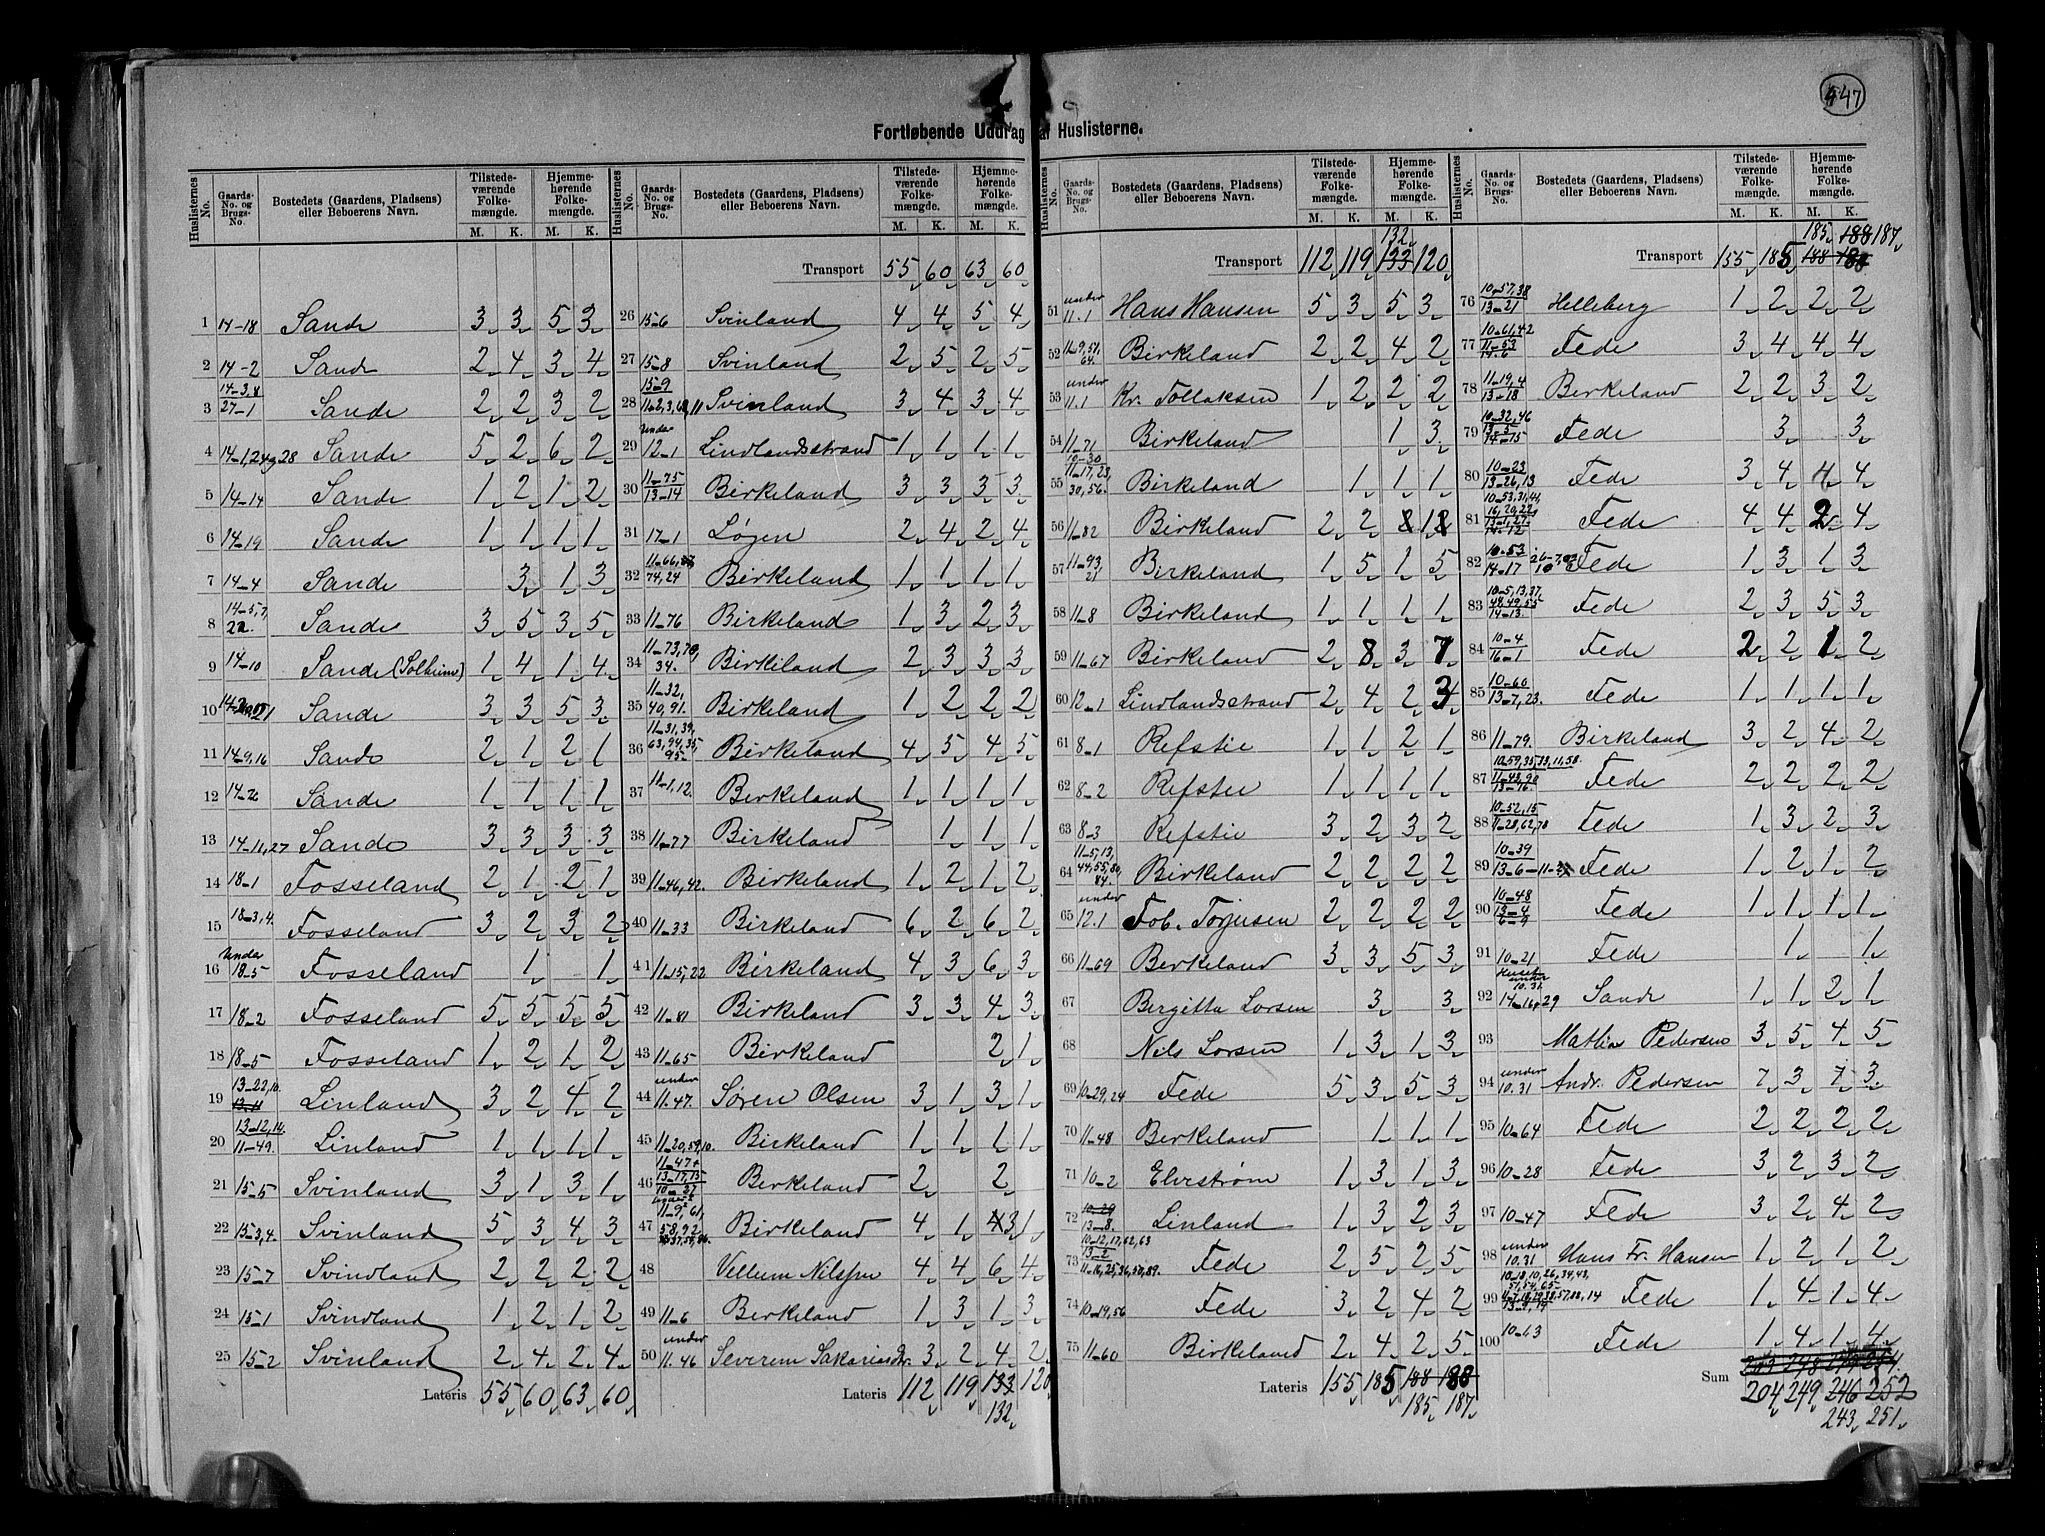 447
Fortløbende Uddrag af Huslisterne.
Huslisternes No. Gaards-No. og Brugs-No. Bostedets (Gaardens, Pladsens) eller Beboerens Navn. Tilstedeværende Folkemængde. M. K. Hjemmehørende Folkemængde. M. K.
1 14-18 Sande 3 3 5 3
2 14-2 Sande 2 4 3 4
3 14-3,8 27-1 Sande 2 2 3 2
4 14-1,24og28 Sande 5 2 6 2
5 14-14 Sande 1 2 1 2
6 14-19 Sande 1 1 1 1
7 14-4 Sande 3 1 3
8 14-5,7, 22. Sande 3 5 3 5
9 14-10 Sande (Solheim) 1 4 1 4
10 Sande 3 3 5 3
11 14-9,16 Sande 2 1 2 1
12 14-26 Sande 1 1 1 1
13 14-11,27 Sande 3 3 3 3
14 18-1 Fosseland 2 1 2 1
15 18-3,4. Fosseland 3 2 3 2
16 Under 18-5 Fosseland 1 1
17 18-2 Fosseland 5 5 5 5
18 18-5 Fosseland 1 2 1 2
19 13-22,10. 13-11 Linland 3 2 4 2
20 13-12,14. 11-49. Linland 1 1 1 1
21 15-5 Svinland 3 1 3 1
22 15-3,4. Svinland 5 3 4 3
23 15-7 Svindland 2 2 2 2
24 15-1 Svindland 1 2 1 2
25 15-2 Svinland 2 4 2 4
Lateris 55 60 63 60
Huslisternes No. Gaards-No. og Brugs-No. Bostedets (Gaardens, Pladsens) eller Beboerens Navn. Tilstedeværende Folkemængde. M. K. Hjemmehørende Folkemængde. M. K.
Transport 55 60 63 60
26 15-6 Svinland 4 4 5 4
27 15-8 Svinland 2 5 2 5
28 15-9 Svinland 3 4 3 4
29 Under 12-1 Lindlandsstrand 1 1 1 1
30 11-75 13-14 Birkeland 3 3 3 3
31 17-1 Løgen 2 4 2 4
32 74,24 Birkeland 1 1 1 1
33 11-76 Birkeland 1 3 2 3
34 11-73,70, 34. Birkeland 2 3 3 3
35 11-32, 40,91. Birkeland 1 2 2 2
36 11-31,39, 63,94,35, 95. Birkeland 4 5 4 5
37 11-1,12. Birkeland 1 1 1 1
38 11-77 Birkeland 1 1 1
39 11-46,42. Birkeland 1 2 1 2
40 11-33 Birkeland 6 2 6 2
41 11-15,22 Birkeland 4 3 6 3
42 11-81 Birkeland 3 3 4 3
43 11-65 Birkeland 2 1
44 under 11.47. Søren Olsen 3 1 3 1
45 11-20,59,10. Birkeland 1 1 1 1
46 11-47+ 13-17,15 10-37 Birkeland 2 2
47 11-9,61, 58,92 Birkeland 4 1 4 3 1
48 Vellum Nilssen 4 4 6 4
49 11-6 Birkeland 1 3 1 3
50 under 11.46 Severin Sakariasdr. 3 2 4 2
Lateris 112 119 133 120
132
Huslisternes No. Gaards-No. og Brugs-No. Bostedets (Gaardens, Pladsens) eller Beboerens Navn. Tilstedeværende Folkemængde. M. K. Hjemmehørende Folkemængde. M. K.
132
Transport 112 119 133 120
51 under 11.1 Hans Hansen 5 3 5 3
52 11-9,51, 64. Birkeland 2 2 4 2
53 under 11.1 Kr. Tollaksen 1 2 2 2
54 11-71 Birkeland 1 3
55 10-30 11-17,23, 30,56. Birkeland 1 1 1
56 11-82 Birkeland 2 2
57 11-93, 21 Birkeland 1 5 1 5
58 11-8 Birkeland 1 1 1 1
59 11-67 Birkeland 2 8 3 7
60 12-1 Lindlandsstrand 2 4 2 3
61 8-1 Refstie 1 1 2 1
62 8-2 Refstie 1 1 1 1
63 8-3 Refstie 3 2 3 2
64 11-5,13, 44,55,80, 84. Birkeland 2 2 2 2
65 under 12.1 Tob. Torjusen 2 2 2 2
66 11-69 Berkeland 3 3 5 3
67 Bergitta Lorsen 3 3
68 Nils Lorsen 1 3 1 3
69 10-29,24 Fede 5 3 5 3
70 11-48 Berkeland 1 1 1
71 10-2 Elvestrøm 1 3 1 3
72 10-29 13-8. Linland 1 3 2 3
73 10-12,17,62,63 13-2 Fede 2 5 2 5
74 10-19,56 Fede 3 2 4 2
75 11-60 Birkeland 2 4 2 5
Lateris 155 185 188 188
185 187
Huslisternes No. Gaards-No. og Brugs-No. Bostedets (Gaardens, Pladsens) eller Beboerens Navn. Tilstedeværende Folkemængde. M. K. Hjemmehørende Folkemængde. M. K.
185 188 187
Transport 155 185 188 188
76 10-57,38 13-21 Helleberg 1 2 2 2
77 10-61,42 11-53 14-6 Fede 3 4 4 4
78 11-19,4 13-18 Birkeland 2 2 3 2
79 10-32,46 13-5 14-15 Fede 3 3
80 10-23 13-26,13 Fede 3 4 4 4
81 16,20,22, 13-1,27, 14-12 Fede 4 4 2 4
82 10-53 14-17 Fede 1 3 1 3
83 10-5,13,37, 48,49,55 14-13 Fede 2 3 5 3
84 10-4 16-1 Fede 2 2 1 2
85 10-60 13-7,23. Fede 1 1 1 1
86 11-79. Birkeland 3 2 4 2
87 10-59,35,33,11,58. 11-43,90 13-16. Fede 2 2 2 2
88 10-52,15 11-28,62,78 Fede 1 3 2 3
89 10-39 Fede 1 2 1 2
90 10-48 13-4 6-9 Fede 1 1 1 1
91 10-21 Fede 1 1
92 Huset under 10.31. 14-16,29 Sande 1 1 2 1
93 Mathia Pedersen 3 5 4 5
94 under 10.31 Andr. Pedersen 7 3 7 3
95 10-64 Fede 2 2 2 2
96 10-28 Fede 3 2 3 2
97 10-47 Fede 3 2 4 2
98 under 10.31 Hans Fr. Hansen 1 2 1 2
99 10-18,10,26,34,43, 51,54,65 13-9,19 Fede 1 4 1 4
100 10-63 Fede 1 4 1 4
Sum 204 249 246 252
243 251